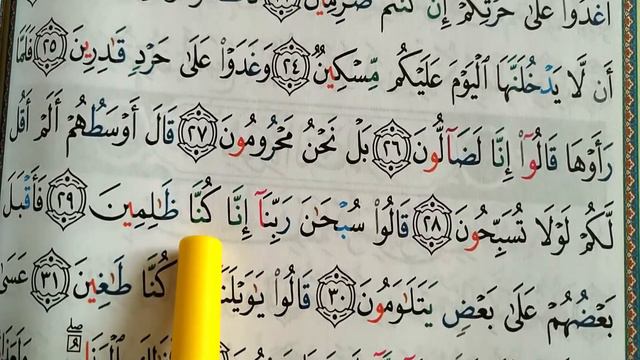 اغْدُوا۟ عَلَىٰ حَرْثِكُمْ إِن كُنتُمْ صَٰرِمِينَ
أَن لَّا يَدْخُلَنَّهَا ٱلْيَوْمَ عَلَيْكُم مِّسْكِينٌ ٢٤ وَغَدَوْا۟ عَلَىٰ حَرْدٍ قَٰدِرِينَ ٢٥ فَلَمَّا
رَأَوْهَا قَالُوٓا۟ إِنَّا لَضَآلُّونَ ٢٦ بَلْ نَحْنُ مَحْرُومُونَ ٢٧ قَالَ أَوْسَطُهُمْ أَلَمْ أَقُل
لَّكُمْ لَوْلَا تُسَبِّحُونَ ٢٨ قَالُوا۟ سُبْحَٰنَ رَبِّنَآ إِنَّا كُنَّا ظَٰلِمِينَ ٢٩ فَأَقْبَلَ
بَعْضُهُمْ عَلَىٰ بَعْضٍ يَتَلَٰوَمُونَ ٣٠ قَالُوا۟ يَٰوَيْلَنَآ كُنَّا طَٰغِينَ ٣١ عَسَىٰ